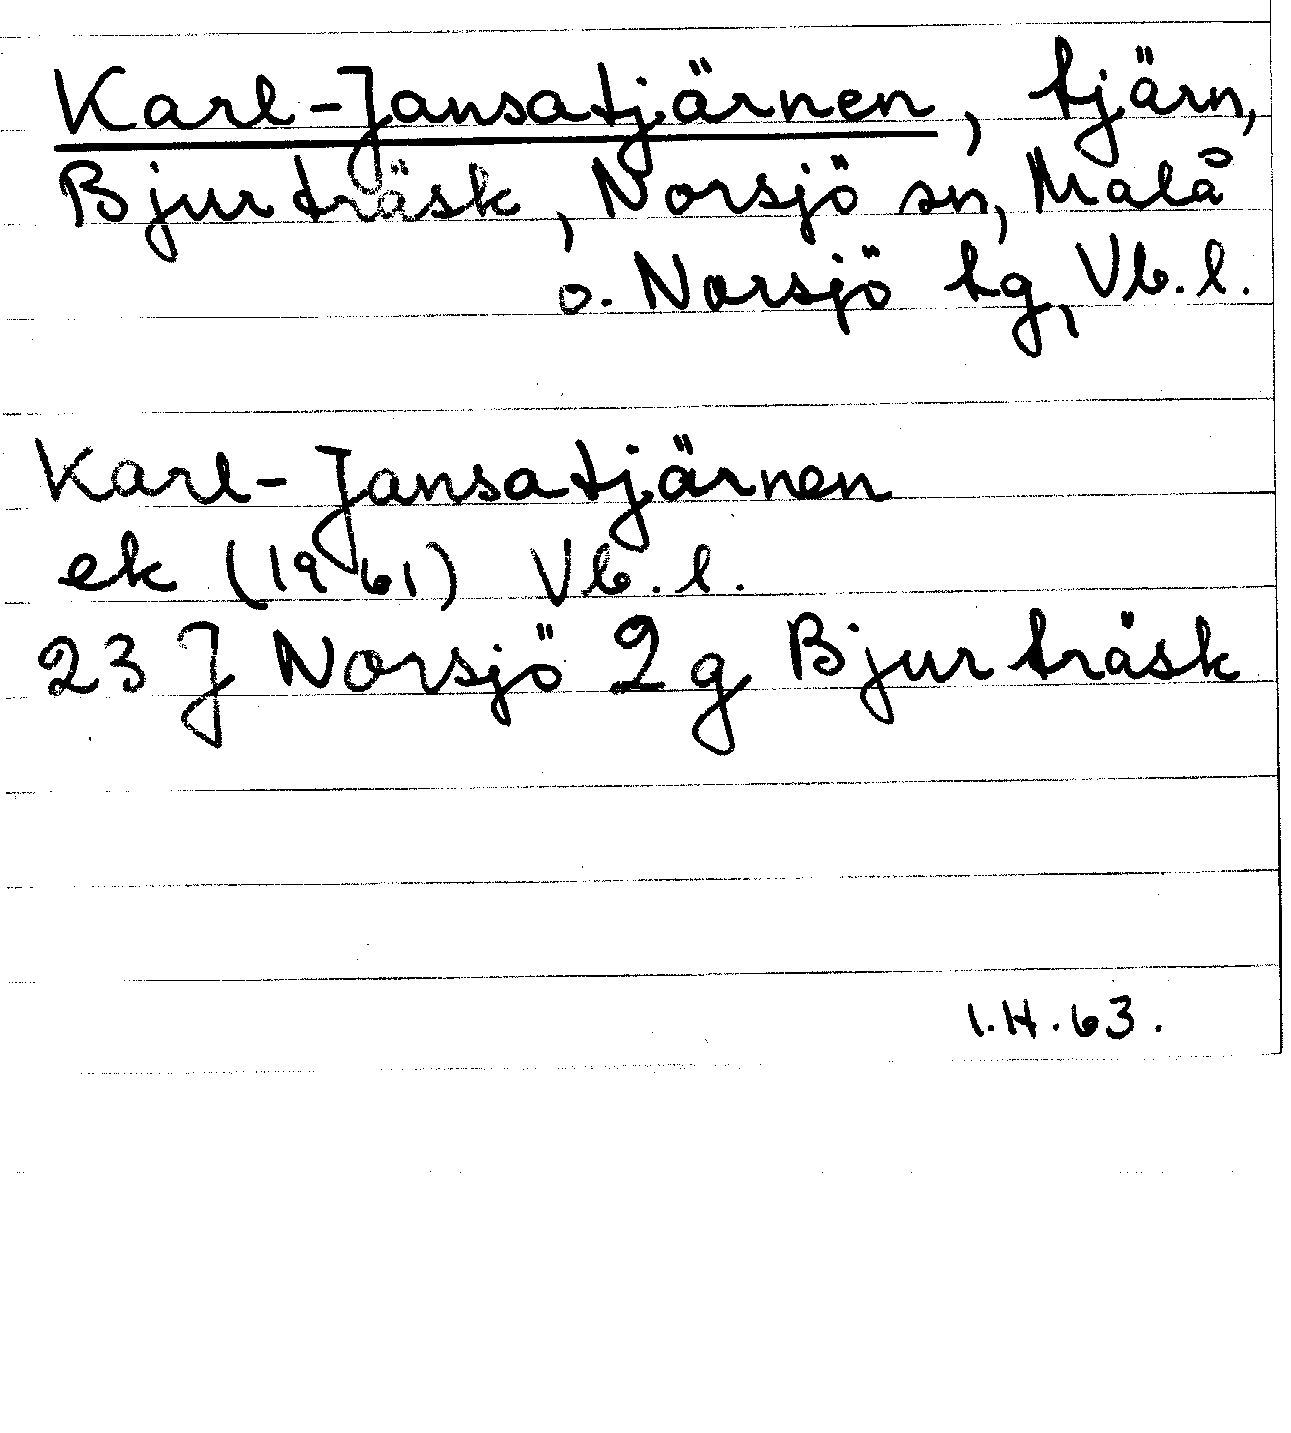 Karl-Jansatjärnen, tjärn,
Bjurträsk, Norsjö sn, Malå
o. Norsjö tg, Vb. l.
Karl-Jansatjärnen
ek (1961) Vb. l.
23 J Norsjö 2g Bjurträsk
I.H.63.